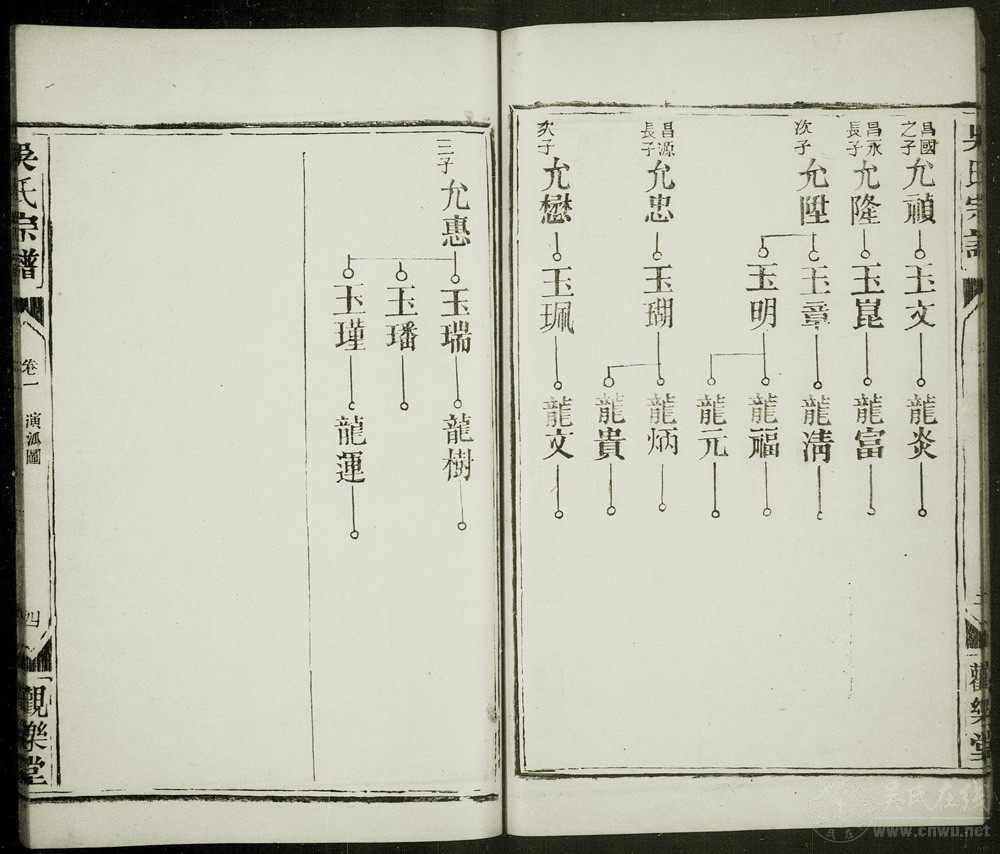 吳氏宗譜
觀樂堂
昌國之子
允禎
玉文
龍炎
昌永長子
允隆
玉崑
龍富
次子
允陞
玉章
龍清
玉明
龍福
龍元
昌源長子
允忠
玉瑚
龍炳
龍貴
次子
允懋
玉珮
龍文
三子
允惠
玉瑞
龍樹
玉璠
玉瑾
龍運
吳氏宗譜
卷一
演派圖
四
觀樂堂
吴氏在线
www.cnwu.net